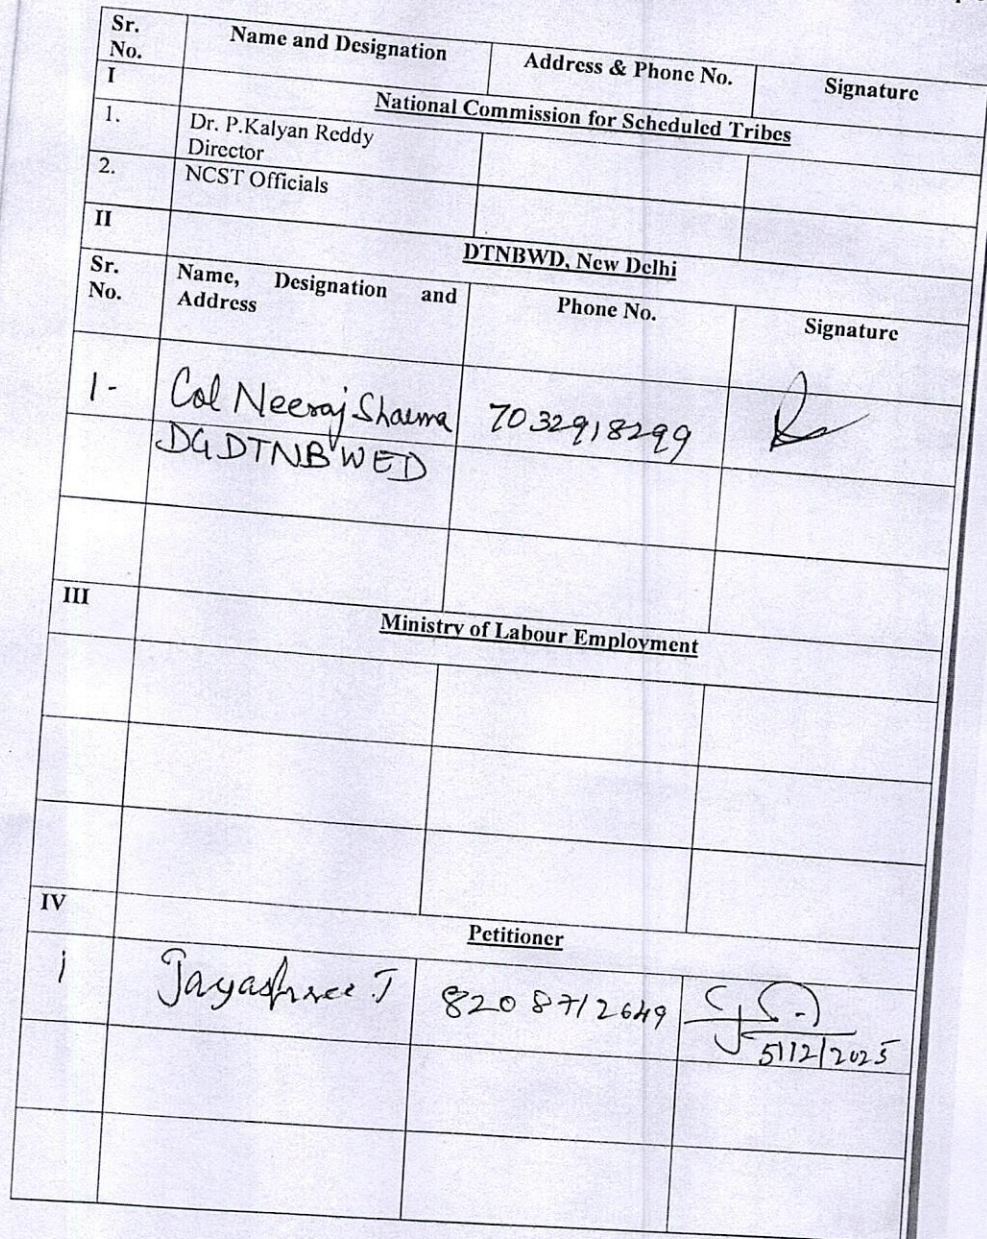 Sr. No. Name and Designation Address & Phone No. Signature
I National Commission for Scheduled Tribes
1. Dr. P.Kalyan Reddy
Director
2. NCST Officials
II DTNBWD, New Delhi
Sr. No. Name, Designation and Address Phone No. Signature
1- Col Neeraj Sharma 7032918299
DGDTNBWED
III Ministry of Labour Employment
IV Petitioner
i Jayashree J 8208712649
5/12/2025